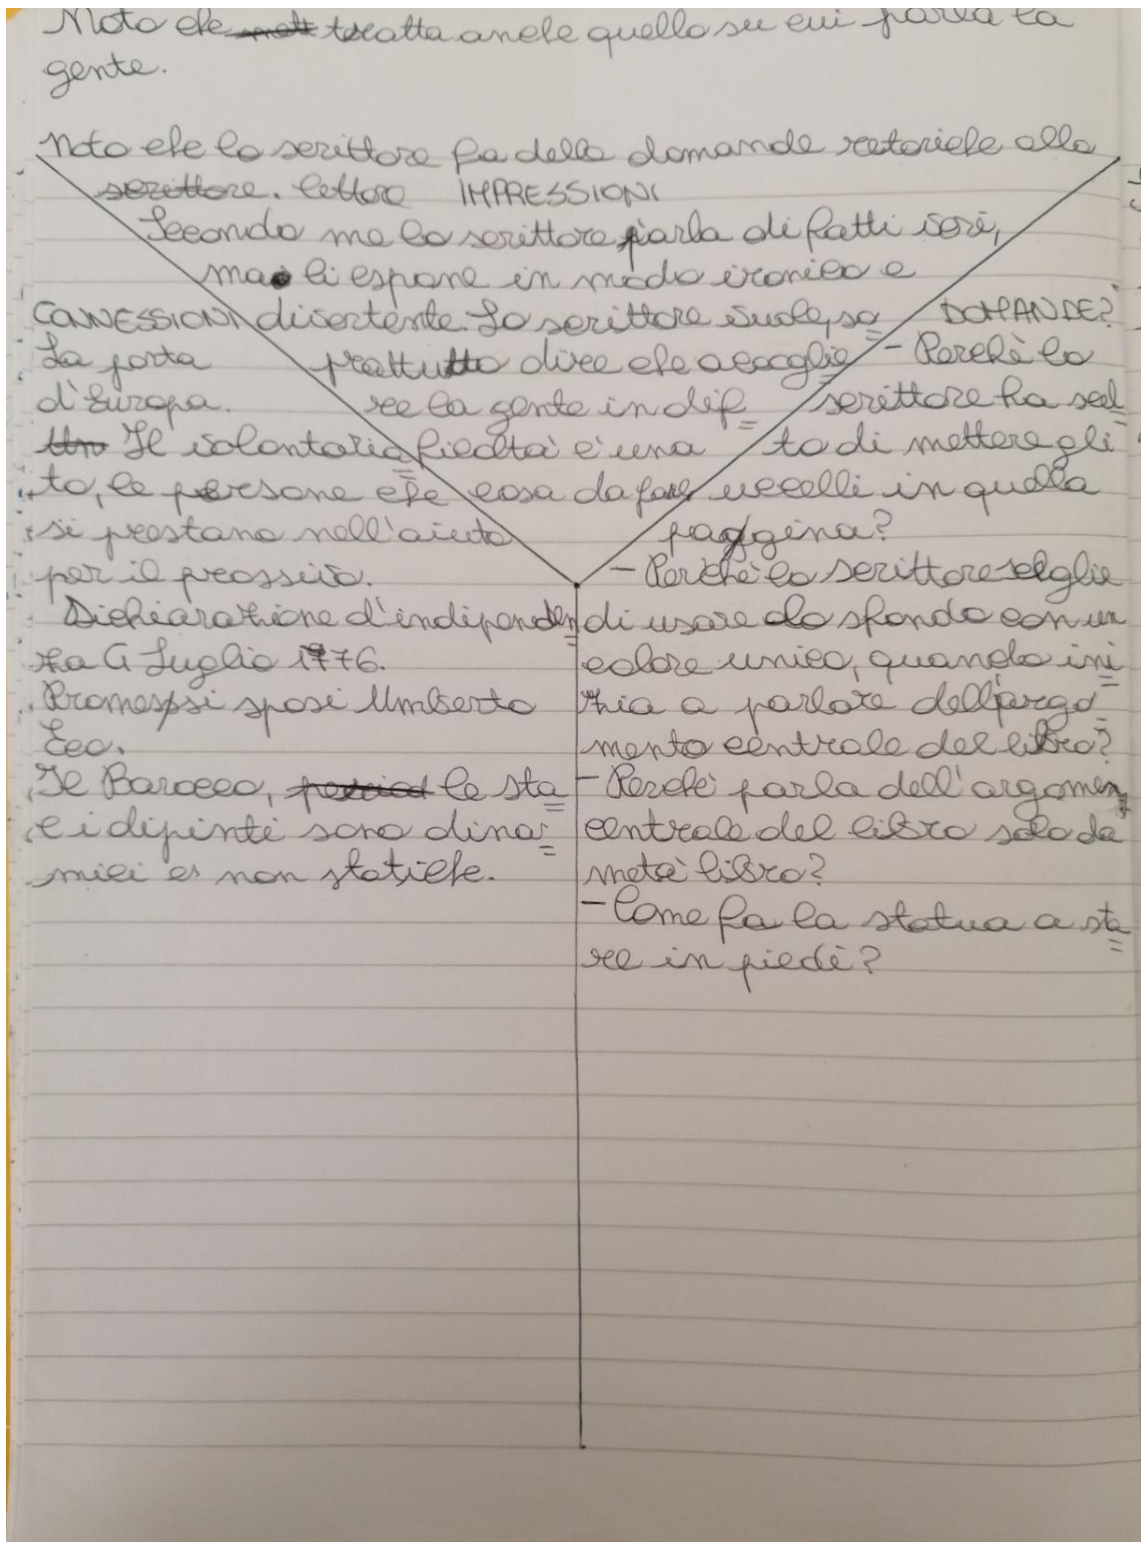 Noto che nott tratta anche quello su cui parla la
gente.
Noto che lo scrittore fa delle domande retoriche allo
scrittore. lettore
IMPRESSIONI
Secondo me lo scrittore parla di fatti veri,
ma li espone in modo ironico e
divertente. Lo scrittore vuole, so
prattutto dire che accoglie
re la gente in dif=
ficoltà è una
cosa da fare
CONNESSIONI
La porta
d'Europa.
Un Il volontaria=
to, le persone che
si prestano nell'aiuto
per il prossimo.
Dichiarazione d'indipenden=
za 4 Luglio 1776.
Promessi sposi Umberto
Eco.
Il Barocco, le sta=
e i dipinti sono dina=
mici e non statiche.
DOMANDE?
- Perchè lo
scrittore ha scel=
to di mettere gli
uccelli in quella
paggina?
- Perchè lo scrittore sceglie
di usare lo sfondo con un
colore unico, quando ini=
zia a parlare dell'argo=
mento centrale del libro?
- Perchè parla dell'argomen=
centrale del libro solo da
metà libro?
- Come fa la statua a sta=
re in piedi?